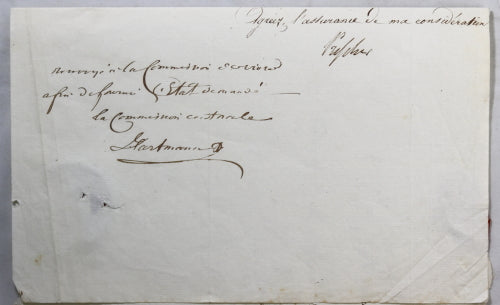 Agréez, l'assurance de ma considération
renvoyé à la Commission
afin de fournir l'Etat demandé
la Commission centrale
Hartmann